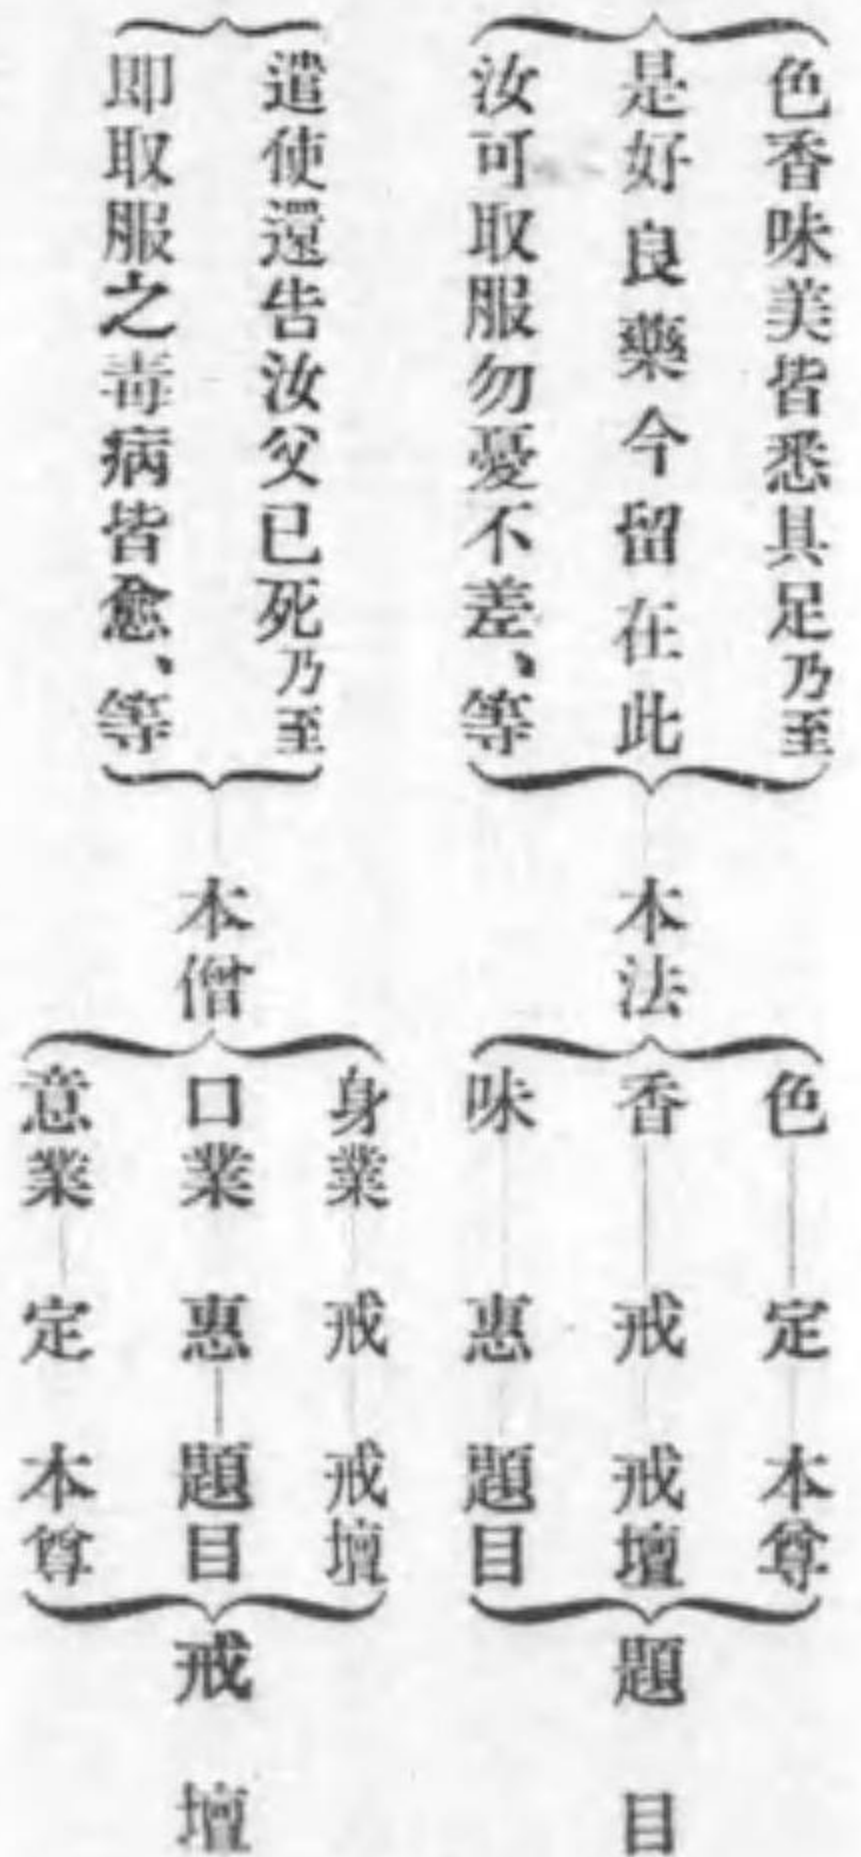 色香味美皆悉具足乃至
是好良藥今留在此
汝可取服勿憂不差、等
本法
色 定 本尊
香 戒 戒壇
味 惠 題目
題目
遣使還告汝父已死乃至
即取服之毒病皆愈、等
本僧
身業 戒 戒壇
口業 惠 題目
意業 定 本尊
戒壇